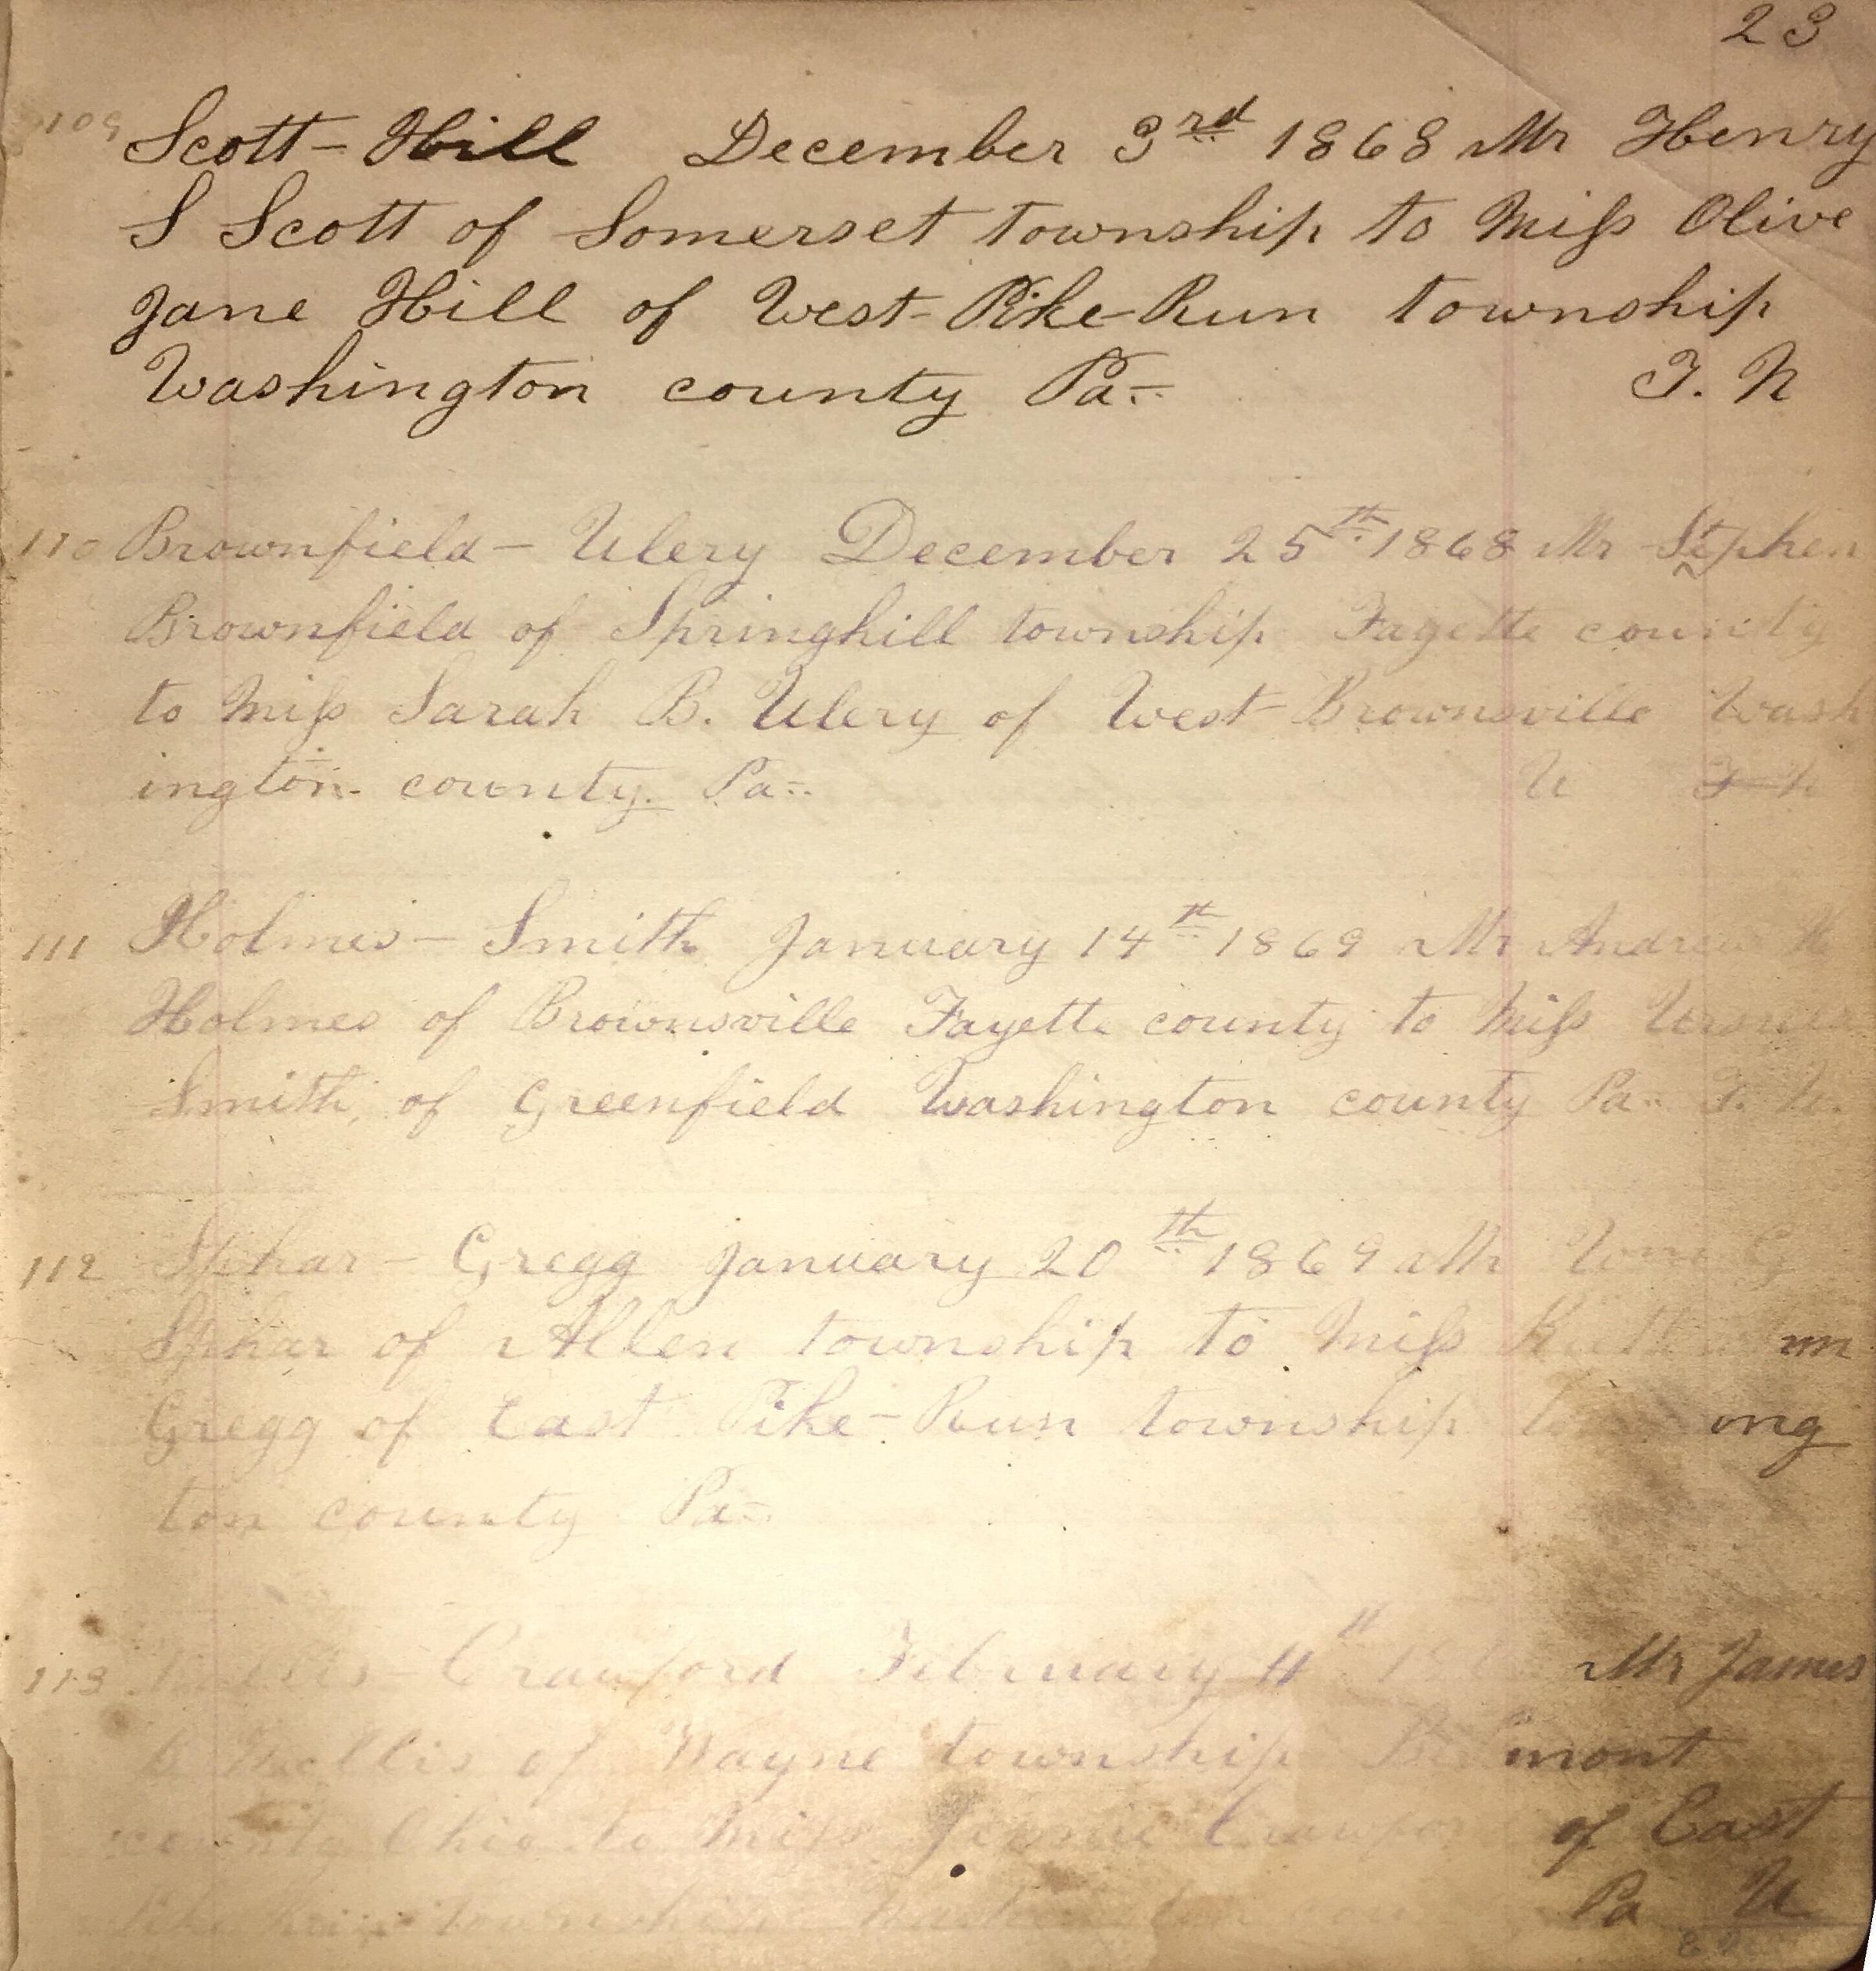 23
109 Scott - Hill December 3rd 1868 Mr Henry
S Scott of Somerset township to Miss Olive
Jane Hill of West-Pike-Run township
Washington county Pa T. N
110 Brownfield - Ulery December 25th 1868 Mr Stephen
Brownfield of Springhill township Fayette county
to Miss Sarah B. Ulery of West-Brownsville Wash
ington county. Pa U
111 Holmes - Smith January 14th 1869 Mr Andrew
Holmes of Brownsville Fayette county to Miss
Smith, of Greenfield Washington county Pa
112 Sphar - Gregg January 20th 1869 Mr
Sphar of Allen township to Miss
Gregg of East Pike-Run township ing
ton county Pa
113 Crawford February Mr James
of Wayne township Belmont
county Ohio to Miss Jennie Crawford of East
Pike Run township Pa U